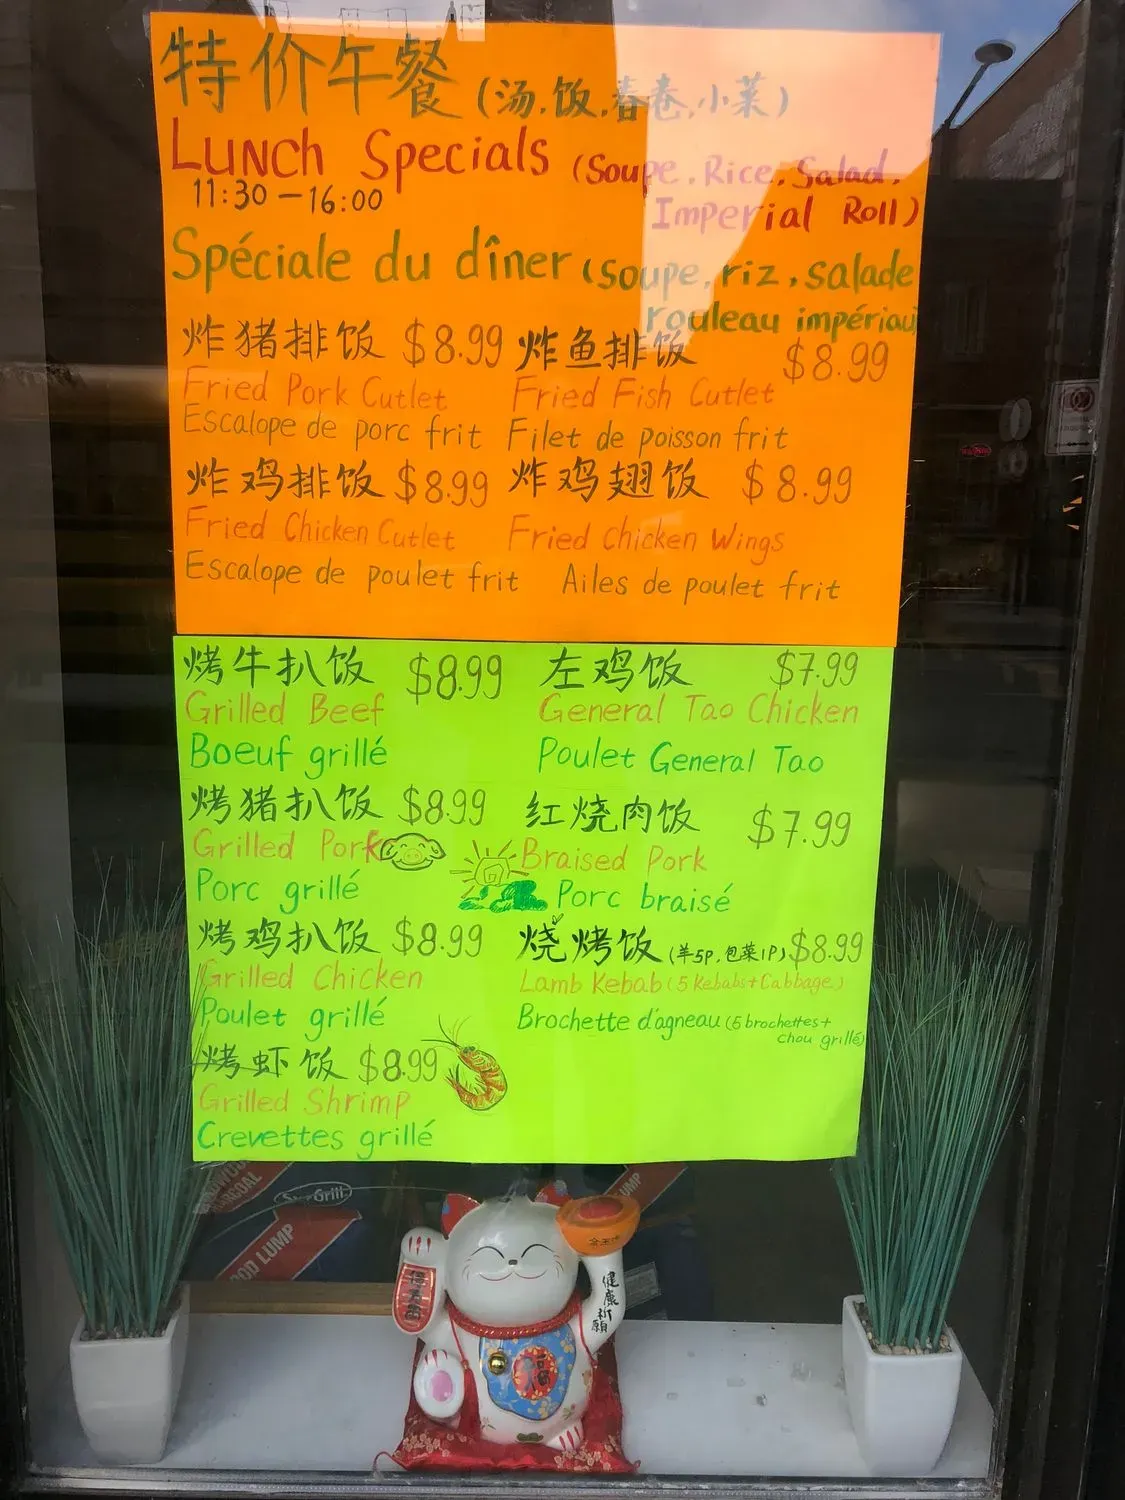 特价午餐 (汤,饭,春卷,小菜)
LUNCH Specials (Soupe, Rice, Salad,
11:30 - 16:00
Imperial Roll)
Spéciale du dîner (soupe, riz, salade
rouleau impériau
炸猪排饭 $8.99
Fried Pork Cutlet
Escalope de porc frit
炸鱼排饭 $8.99
Fried Fish Cutlet
Filet de poisson frit
炸鸡排饭 $8.99
Fried Chicken Cutlet
Escalope de poulet frit
炸鸡翅饭 $8.99
Fried Chicken Wings
Ailes de poulet frit
烤牛扒饭 $8.99
Grilled Beef
Boeuf grillé
左鸡饭 $7.99
General Tao Chicken
Poulet General Tao
烤猪扒饭 $8.99
Grilled Pork
Porc grillé
红烧肉饭 $7.99
Braised Pork
Porc braisé
烤鸡扒饭 $8.99
Grilled Chicken
Poulet grillé
烧烤饭 (羊5P,包菜1P) $8.99
Lamb Kebab (5 Kebabs+Cabbage)
Brochette d'agneau (5 brochettes+
chou grillé)
烤虾饭 $8.99
Grilled Shrimp
Crevettes grillé
OD LUMP
UMP
健康祈願
福